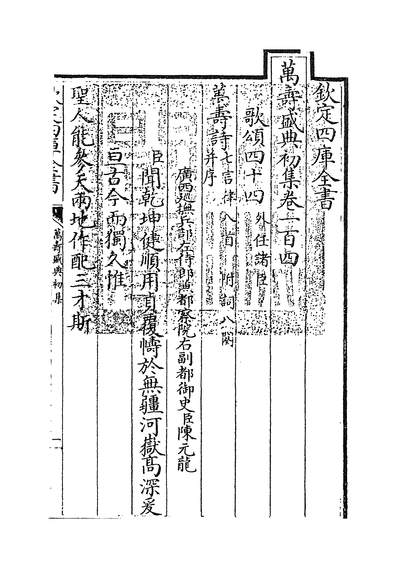 欽定四庫全書
萬壽盛典初集卷一百四
歌頌四十四 外任諸臣
萬壽詩 七言律八首 附詞八闋 并序
廣西巡撫兵部左侍郎兼都察院右副都御史臣陳元龍
臣聞乾坤健順用貞覆幬於無疆河嶽高深爰
亘古今而獨久惟
聖人能參天兩地作配三才斯
欽定四庫全書
萬壽盛典初集